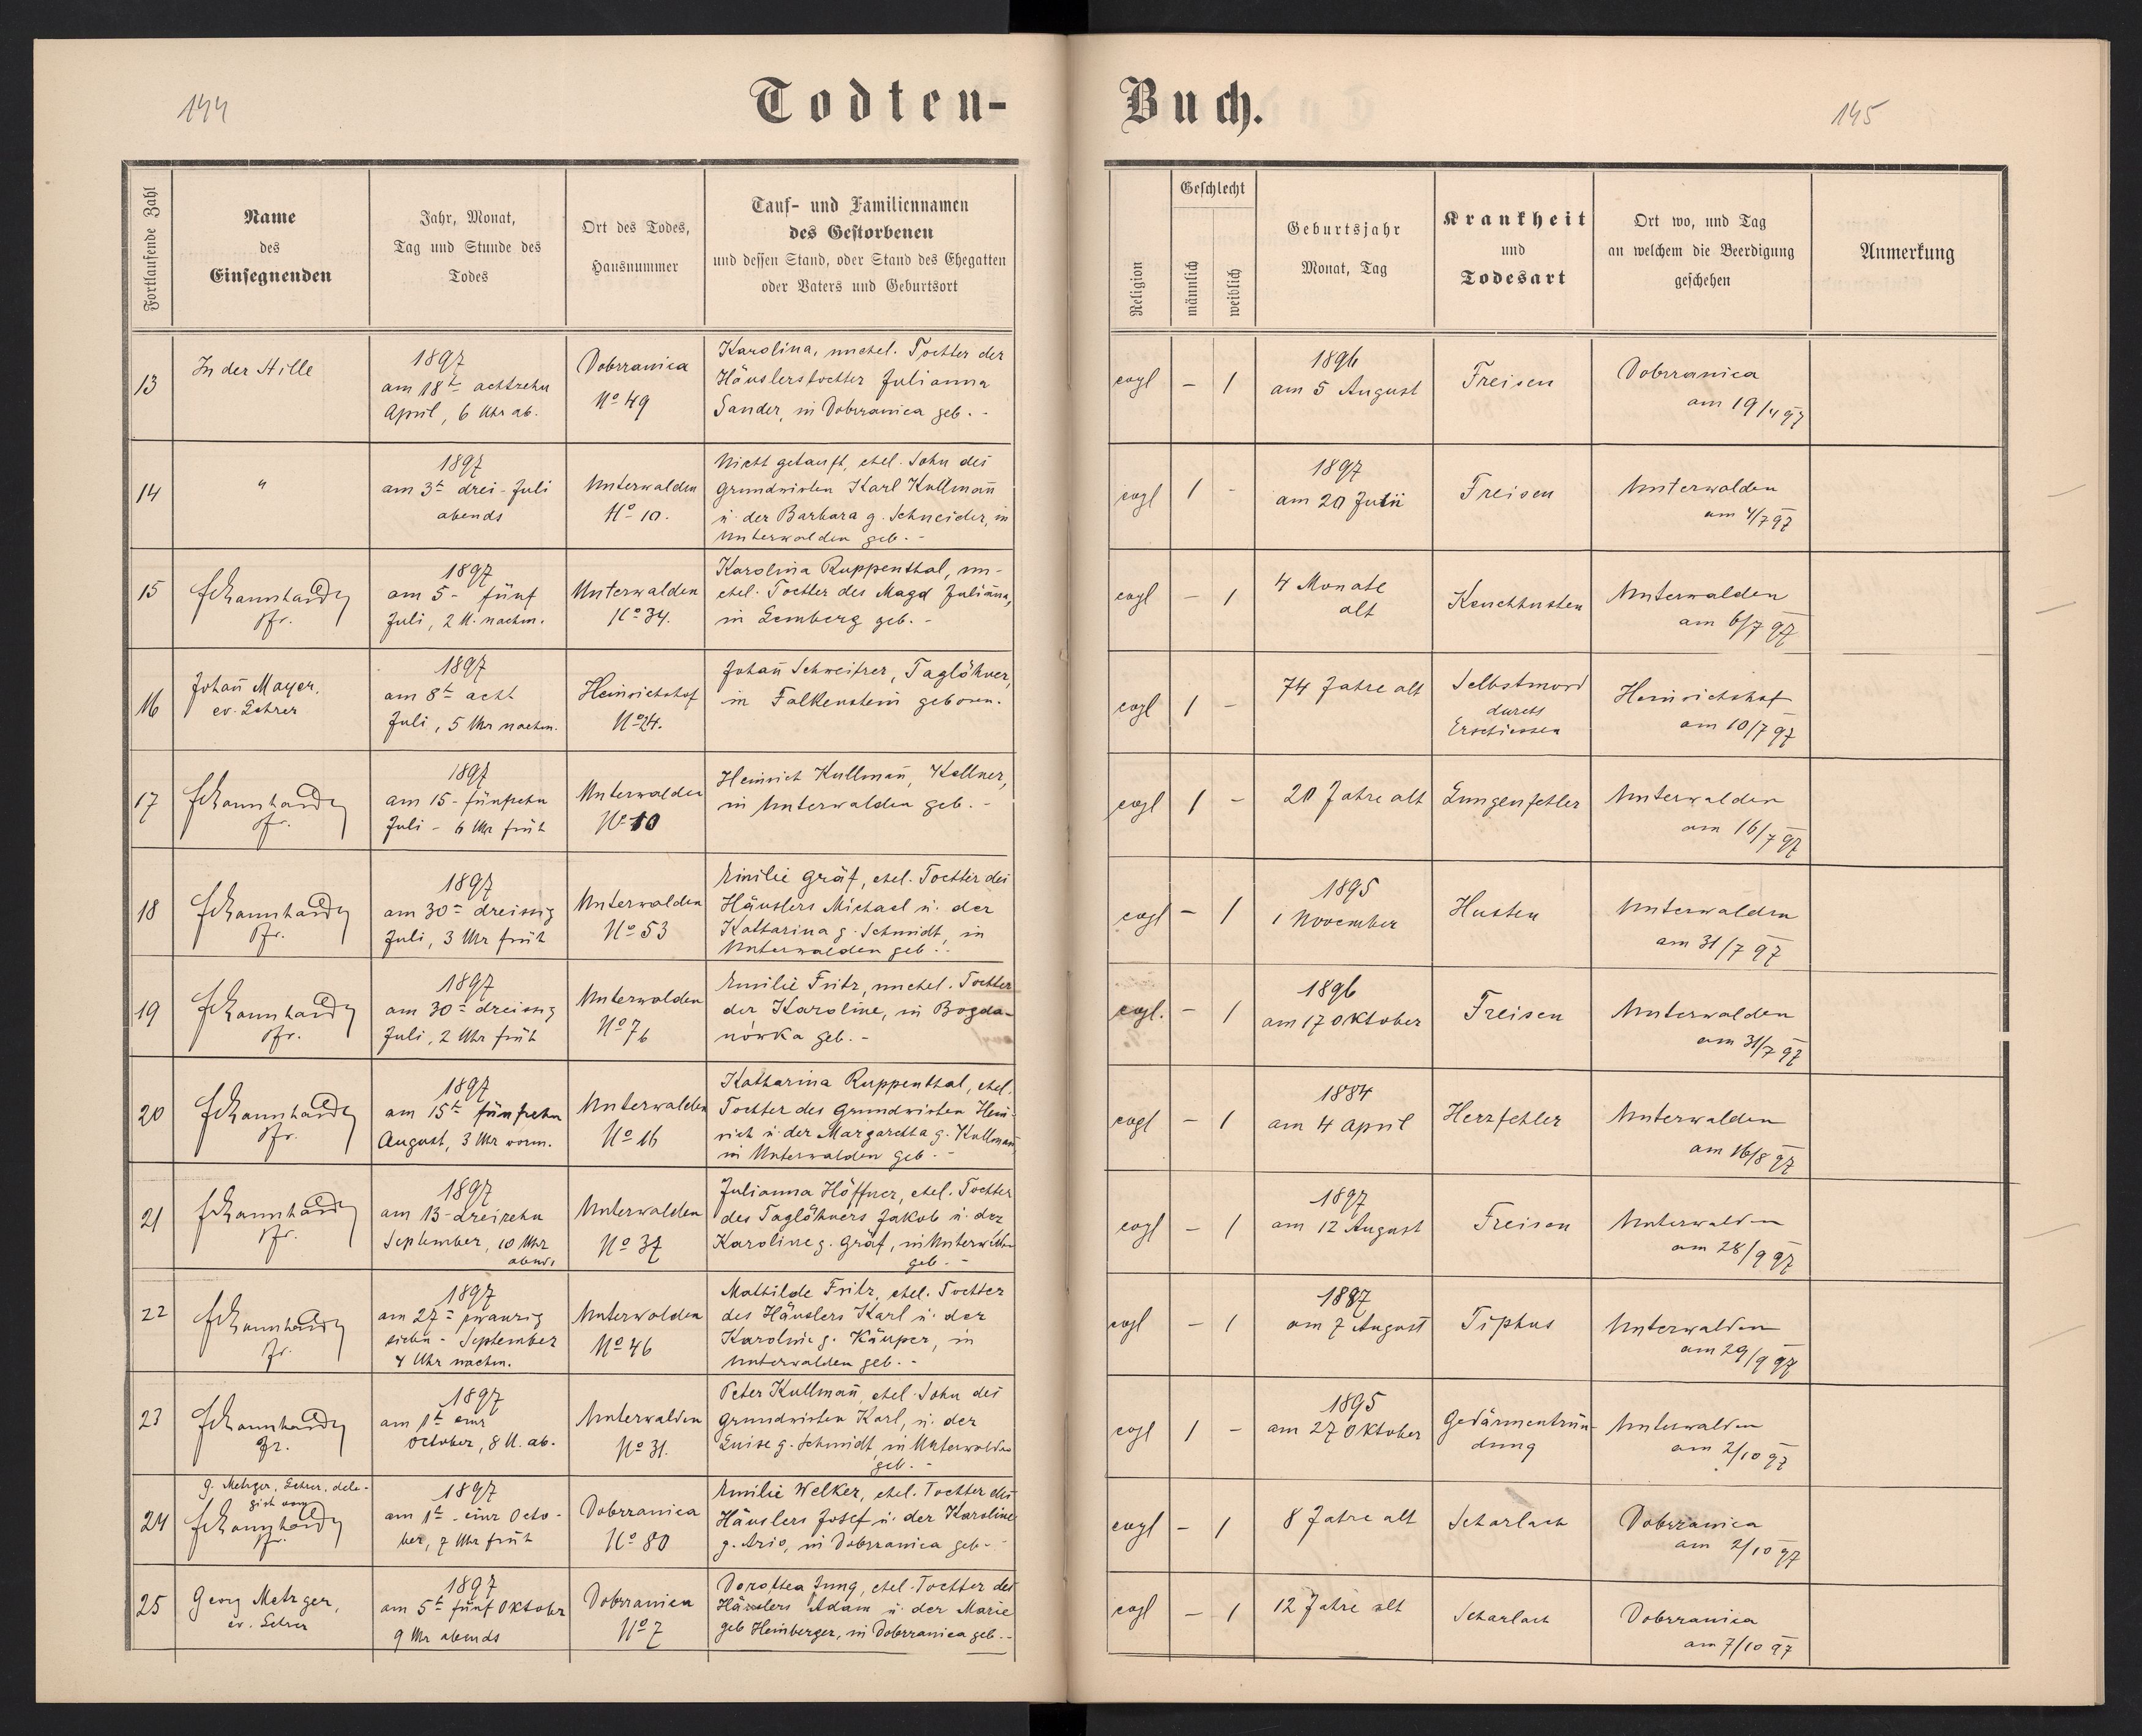 144
Todten-
Buch.
145
Fortlaufende Zahl
Name
des
Einsegnenden
Jahr, Monat,
Tag und Stunde des
Todes
Ort des Todes,
Hausnummer
Tauf- und Familiennamen
des Gestorbenen
und dessen Stand, oder Stand des Ehegatten
oder Vaters und Geburtsort
Religion
Geschlecht
männlich
weiblich
Geburtsjahr
Monat, Tag
Krankheit
und
Todesart
Ort wo, und Tag
an welchem die Beerdigung
geschehen
Anmerkung
13
In der Stille
1897
am 18t achtzehn
April, 6 Uhr ab.
Dobrzanica
No 49
Karolina, unehel. Tochter der
Häuslerstochter Julianna
Sander, in Dobrzanica geb. -
evgl
- 1
1896
am 5 August
Freisen
Dobrzanica
am 19/4 97
14
"
1897
am 3t drei - Juli
abends
Unterwalden
No 10.
Nicht getauft, ehel. Sohn des
Grundwirten Karl Kullmañ
u. der Barbara g. Schneider, in
Unterwalden geb. -
evgl
1 -
1897
am 20
Freisen
Unterwalden
am 4/7 97
15
Pfr.
1897
am 5 - fünf
Juli, 2 U. nachm.
Unterwalden
No 34.
Karolina Ruppenthal, un-
ehel. Tochter des Magd Juliãna,
in Lemberg geb. -
evgl
- 1
4 Monate
alt
Keuchhusten
Unterwalden
am 6/7 97
16
Johañ Mayer,
ev. Lehrer
1897
am 8t acht
Juli, 5 Uhr nachm.
Heinrichshof
No 24.
Johañ Schweitzer, Taglöhner,
in Falkenstein geboren.
evgl
1 -
74 Jahre alt
Selbstmord
durch
Erschiessen
Heinrichshof
am 10/7 97
17
Pfr.
1897
am 15 - fünfzehn
Juli - 6 Uhr früh
Unterwalden
No 10
Heinrich Kullmañ, Kellner,
in Unterwalden geb. -
evgl
1 -
20 Jahre alt
Lungenfehler
Unterwalden
am 16/7 97
18
Pfr.
1897
am 30 = dreissig
Juli, 3 Uhr früh
Unterwalden
No 53
Emilie Gräf, ehel. Tochter des
Häuslers Michael u. der
Katharina g. Schmidt, in
Unterwalden geb. -
evgl
- 1
1895
1 November
Husten
Unterwalden
am 31/7 97
19
Pfr.
1897
am 30 = dreissig
Juli, 2 Uhr früh
Unterwalden
No 76
Emilie Fritz, unehel. Tochter
der Karoline, in Bogda-
nówka geb. -
evgl.
- 1
1896
am 17 Oktober
Freisen
Unterwalden
am 31/7 97
20
Pfr.
1897
am 15t fünfzehn
August, 3 Uhr vorm.
Unterwalden
No 16
Katharina Ruppenthal, ehel.
Tochter des Grundwirten Hein-
rich u. der Margaretha g. Kullmañ,
in Unterwalden geb. -
evgl
- 1
1884
am 4 April
Herzfehler
Unterwalden
am 16/8 97
21
Pfr.
1897
am 13 - dreizehn
September, 10 Uhr
abends
Unterwalden
No 37
Julianna Höffner, ehel. Tochter
des Taglöhners Jakob u. der
Karoline g. Gräf, in Unterwalden
geb. -
evgl
- 1
1897
am 12 August
Freisen
Unterwalden
am 28/9 97
22
Pfr.
1897
am 27 = zwanzig
sieben - September
4 Uhr nachm.
Unterwalden
No 46
Mathilde Fritz, ehel. Tochter
des Häuslers Karl u. der
Karoline g. Käuper, in
Unterwalden geb. -
evgl
- 1
1887
am 7 August
Tiphus
Unterwalden
am 29/9 97
23
Pfr.
1897
am 1t eins
October, 8 U. ab.
Unterwalden
No 31.
Peter Kullmañ, ehel. Sohn des
Grundwirten Karl, u. der
Luise g. Schmidt, in Unterwalden
geb. -
evgl
1 -
1895
am 27 Oktober
Gedärmentzün-
dung
Unterwalden
am 2/10 97
24
G. Metzger, Lehrer, dele-
girt vom
Pfr.
1897
am 1t - eins Octo-
ber, 7 Uhr früh
Dobrzanica
No 80
Emilie Welker, ehel. Tochter des
Häuslers Josef u. der Karoline
g. Ario, in Dobrzanica geb. -
evgl
- 1
8 Jahre alt
Scharlach
Dobrzanica
am 2/10 97
25
Georg Metzger,
ev. Lehrer
1897
am 5t fünf Oktober
9 Uhr abends
Dobrzanica
No 7
Dorothea Jung, ehel. Tochter des
Häuslers Adam u. der Marie
geb Heinberger, in Dobrzanica geb. -
evgl
- 1
12 Jahre alt
Scharlach
Dobrzanica
am 7/10 97